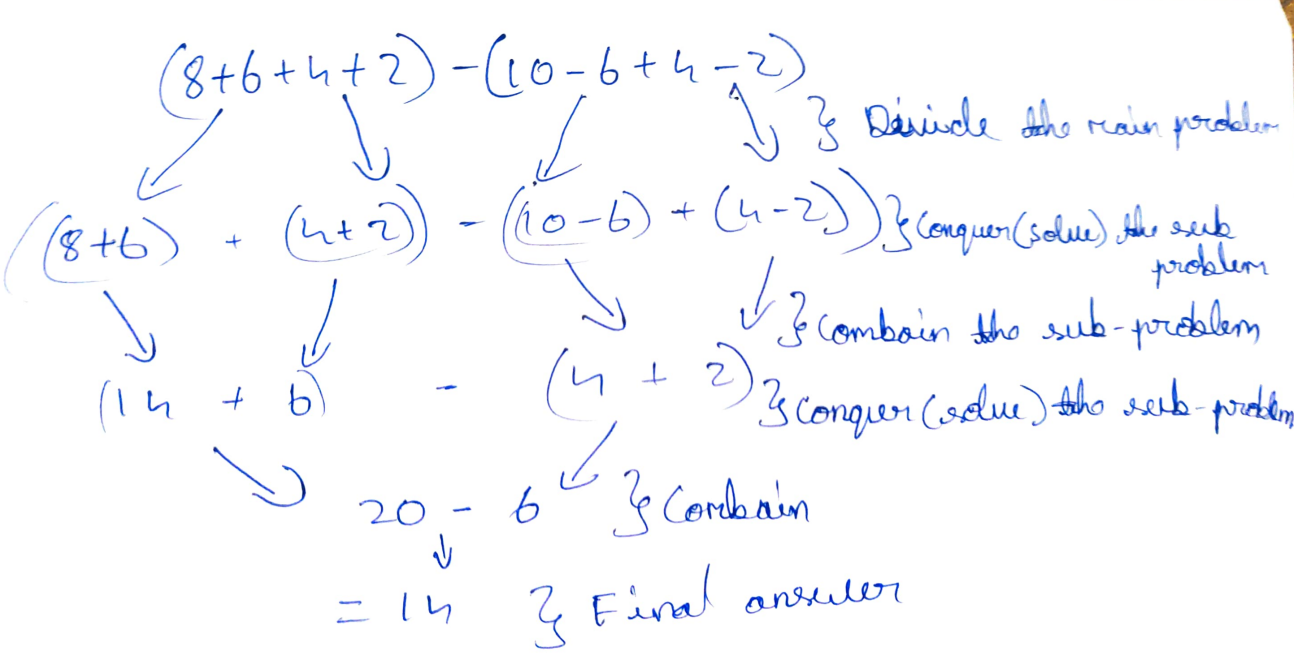 (8+6+4+2) - (10-6+4-2)
} Divide the main problem
((8+6) + (4+2)) - ((10-6) + (4-2)) } Conquer (solve) the sub
problem
} Combain the sub-problem
(14 + 6) - (4 + 2) } conquer (solve) the sub-problem
20 - 6 } Combain
= 14 } Final answer